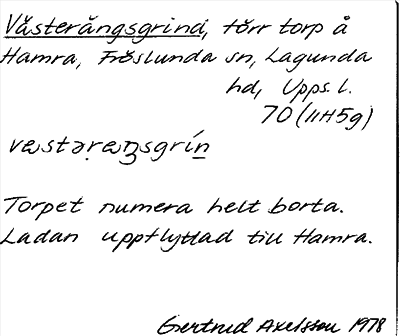 Västerängsgrind, förr torp å
Hamra, Fröslunda sn, Lagunda
hd, Upps. l.
70 (11H5g)
væstəṛæŋsgrín
Torpet numera helt borta.
Ladan uppflyttad till Hamra.
Gertrud Axelsson 1978